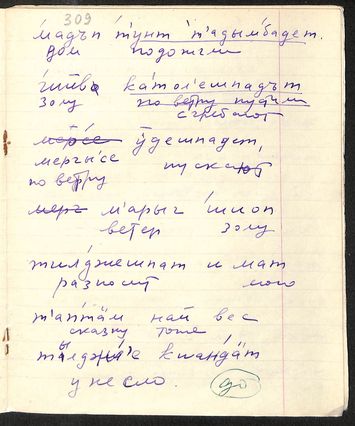 309
мадъп тунт т'адымбадет.
дом подожгли
шив каˊтол'ешпадът
золу по ветру пустили
сгребают
мерсе ӱдешпадет,
мергы'се пускают
по ветру
мерг м'арыг шиоп
ветер золу
тилджешпат и мат
разносит мою
т'аптӓм най вес
сказку тоже
тылджи'е кшандӓт
унесло. до